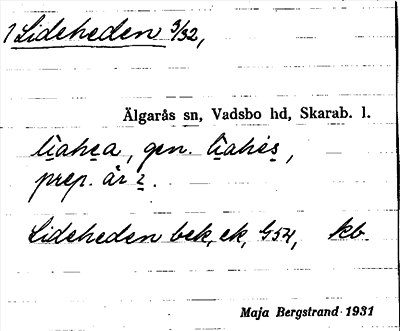 1 Lideheden 3/32,
Älgarås sn, Vadsbo hd, Skarab. l.
gen.
prep. är 2.
Lideheden bek, ek, G54, kb
Maja Bergstrand 1931